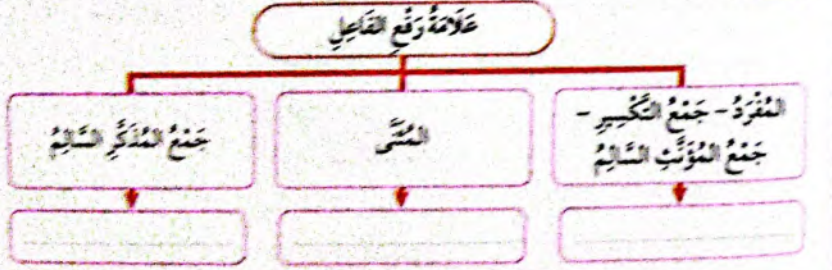 عَلَامَةُ رَفْعِ الفَاعِلِ
المُفْرَدُ - جَمْعُ التَّكْسِيرِ -
جَمْعُ المُؤَنَّثِ السَّالِمُ
المُثَنَّى
جَمْعُ المُذَكَّرِ السَّالِمُ